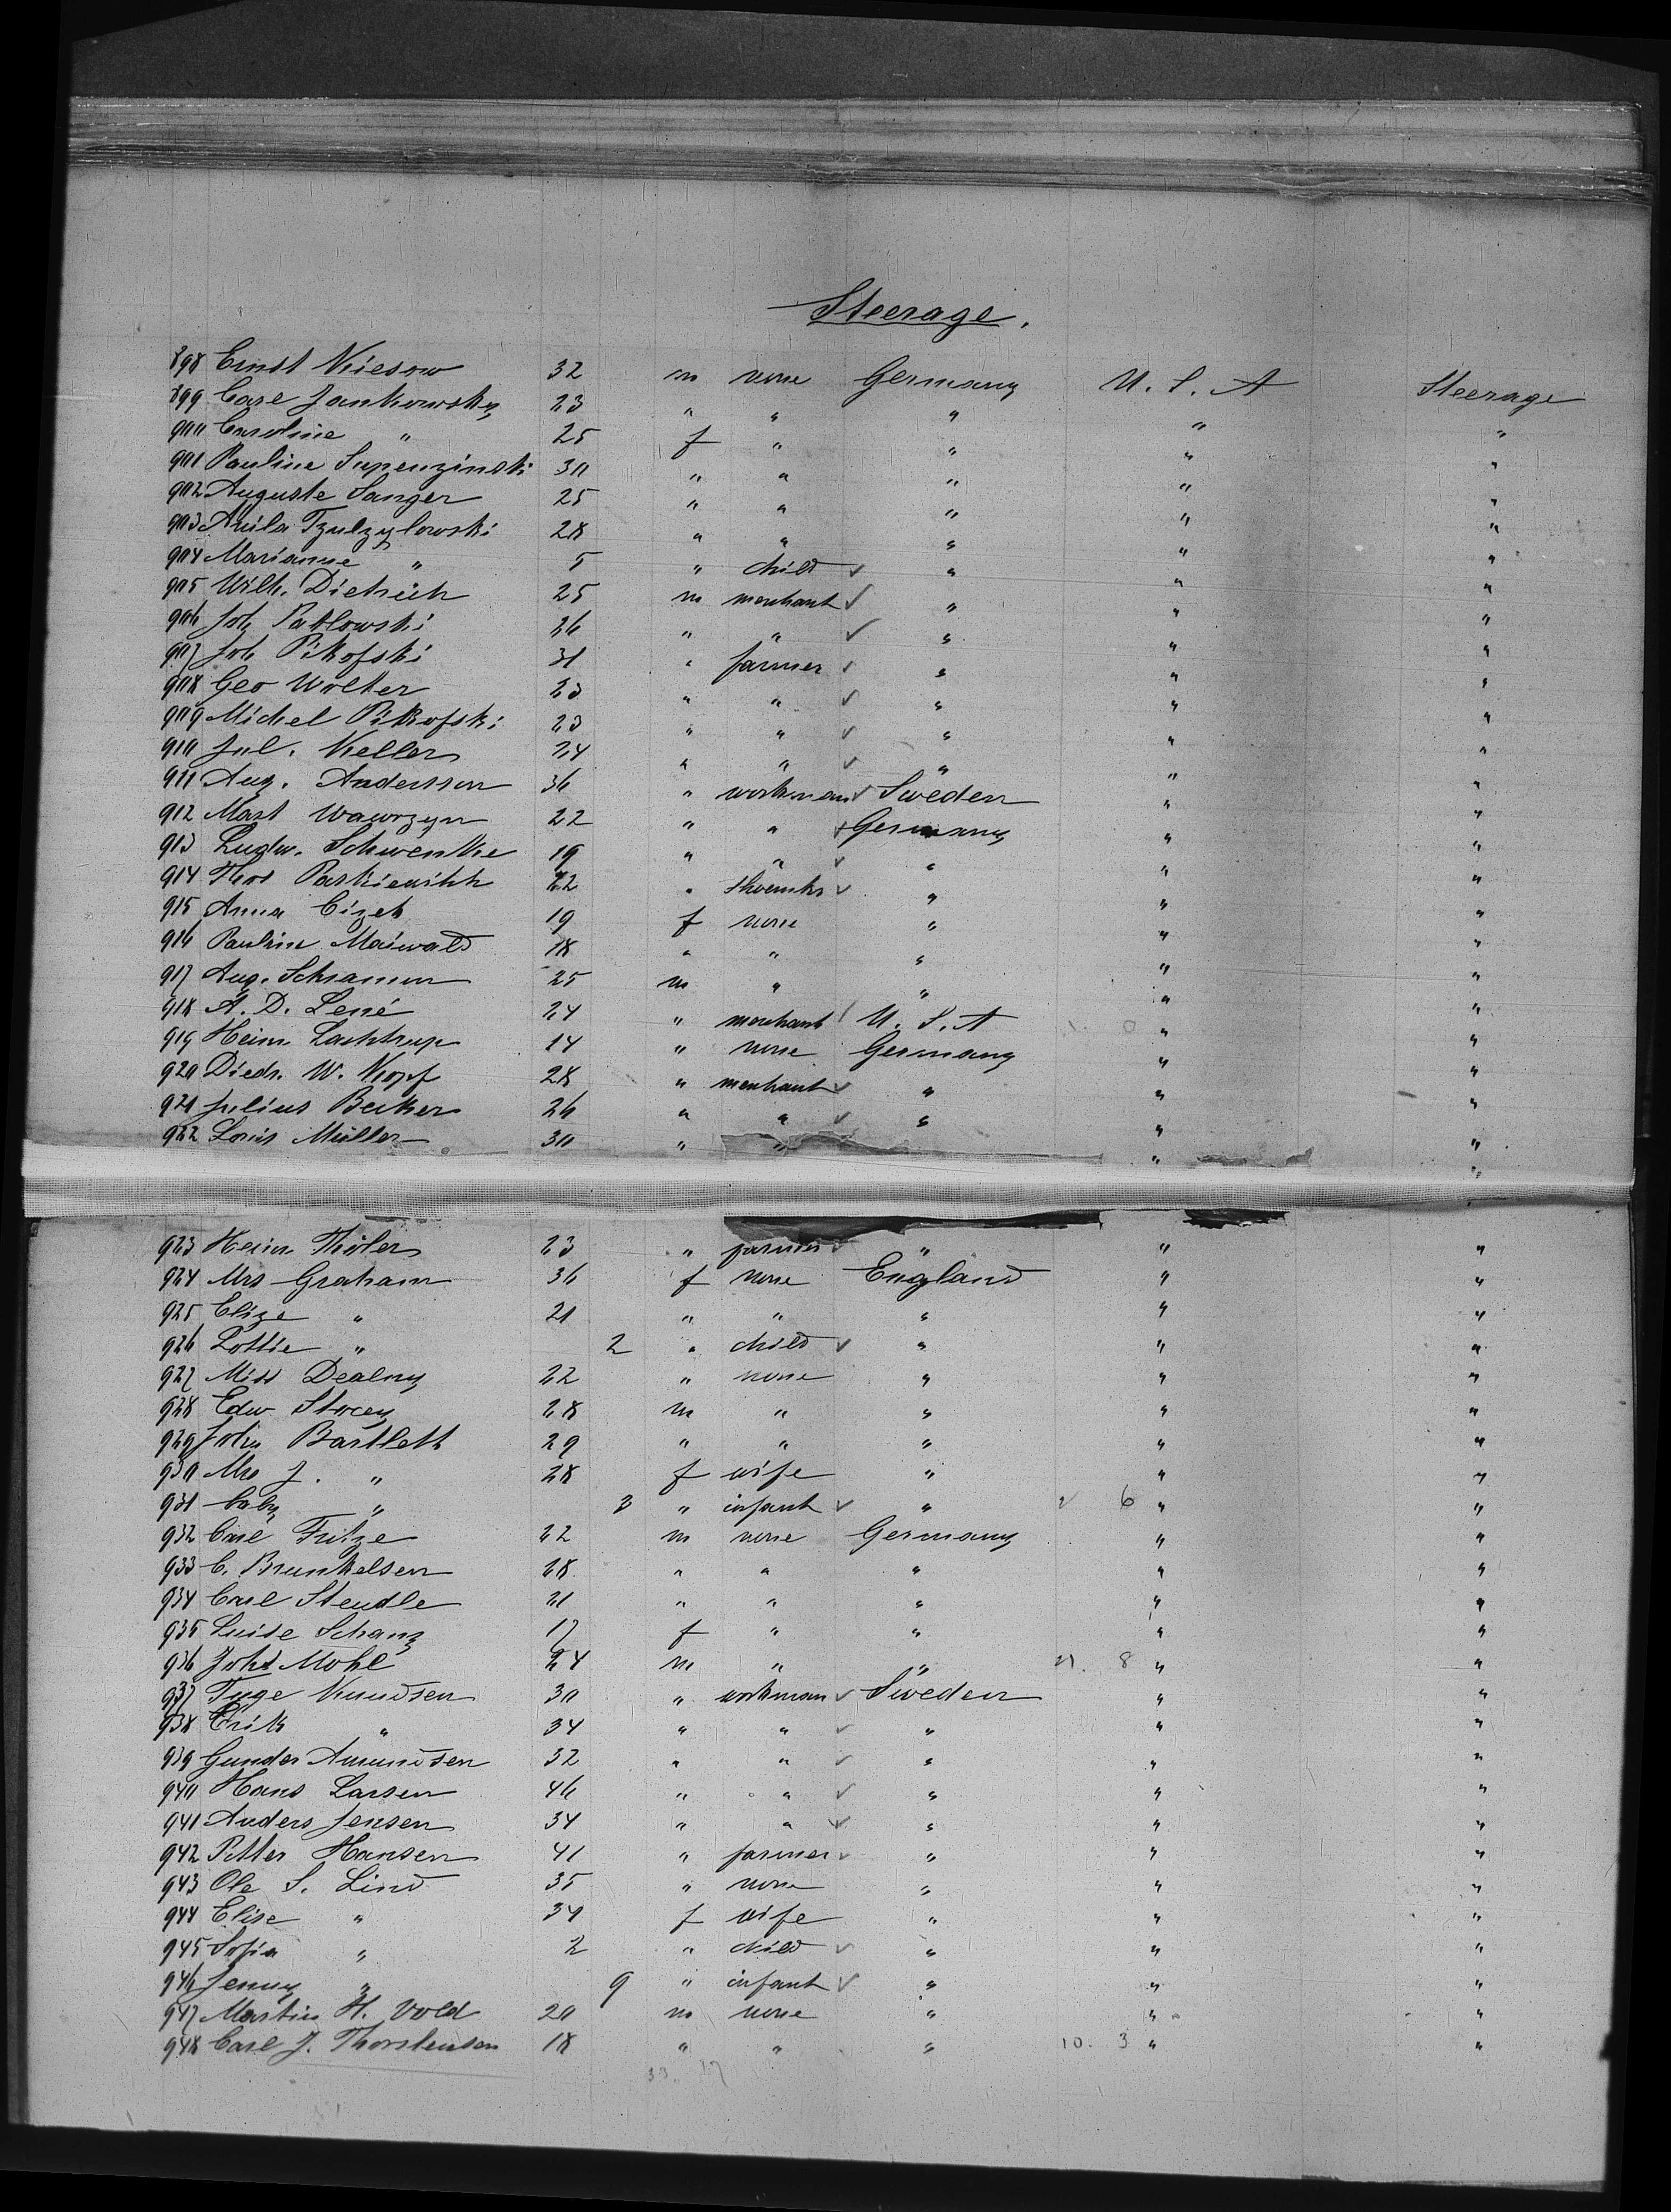 Steerage.
898 Ernst Kiesow 32 m none Germany U. S. A Steerage
899 Carl Jankowsky 23 " " " " "
900 Caroline " 25 f " " " "
901 Pauline Supenzinski 30 " " " " "
902 Auguste Sanger 25 " " " " "
903 28 " " " " "
904 Marianne " 5 " child ✓ " " "
905 Wilh. Dietrich 25 m merchant ✓ " " "
906 Joh Pablowski 26 " " ✓ " " "
907 Joh Pikofski 31 " farmer ✓ " " "
908 Geo Wolter 23 " " ✓ " " "
909 Michel Pikofski 23 " " ✓ " " "
910 Jul. Keller 24 " " ✓ " " "
911 Aug. Andersson 36 " workman ✓ Sweden " "
912 Mart Wawrzyn 22 " " ✓ Germany " "
913 Schwenke 19 " " ✓ " " "
914 22 " shoemkr ✓ " " "
915 Anna Cizek 19 f none " " "
916 Pauline Maiwald 18 " " " " "
917 Aug. Schramm 25 m " " " "
918 A. D. Lené 24 " merchant U. S. A " "
919 Heinr. Lachtrup 14 " none Germany " "
920 Diedr. W. Kopf 28 " merchant ✓ " " "
921 Julius Becker 26 " " ✓ " " "
922 Louis Müller 30 " " " "
923 Heinr. Thölen 23 " farmer ✓ " " "
924 Mrs Graham 36 f none England " "
925 Elize " 21 " " " " "
926 Lottie " 2 " child ✓ " " "
927 Miss Dealny 22 " none " " "
928 Edw Stocey 28 m " " " "
929 John Bartlett 29 " " " " "
930 Mrs J. " 28 f wife " " "
931 baby " 3 " infant ✓ " 6 " "
932 Carl Fritze 22 m none Germany " "
933 C. Brunkelsen 28 " " " " "
934 Carl Steudle 21 " " " " "
935 Luise Schanz 17 f " " " "
936 Johs Mohl 24 m " " 21. 8 " "
937 Tuge Knudsen 30 " workman ✓ Sweden " "
938 Erik " 34 " " ✓ " " "
939 Gunder Amundsen 32 " " ✓ " " "
940 Hans Larsen 46 " " ✓ " " "
941 Anders Jensen 34 " " ✓ " " "
942 Petter Hansen 41 " farmer ✓ " " "
943 Ole S. Lind 35 " none " " "
944 Elise " 34 f wife " " "
945 Sofia " 2 " child ✓ " " "
946 Jenny " 9 " infant ✓ " " "
947 Martin H. Vold 20 m none " " "
948 Carl J. Thorstensen 18 " " " 10. 3 " "
33. 17